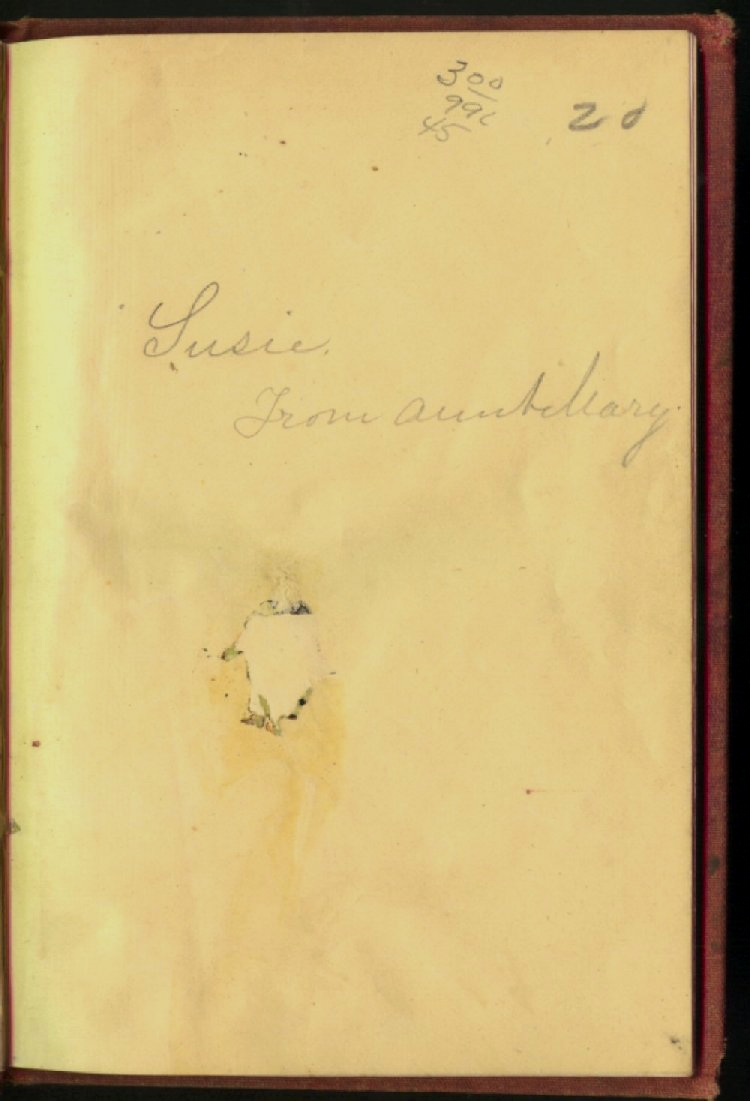 300
99c
45
20
Susie.
From Aunt Mary.